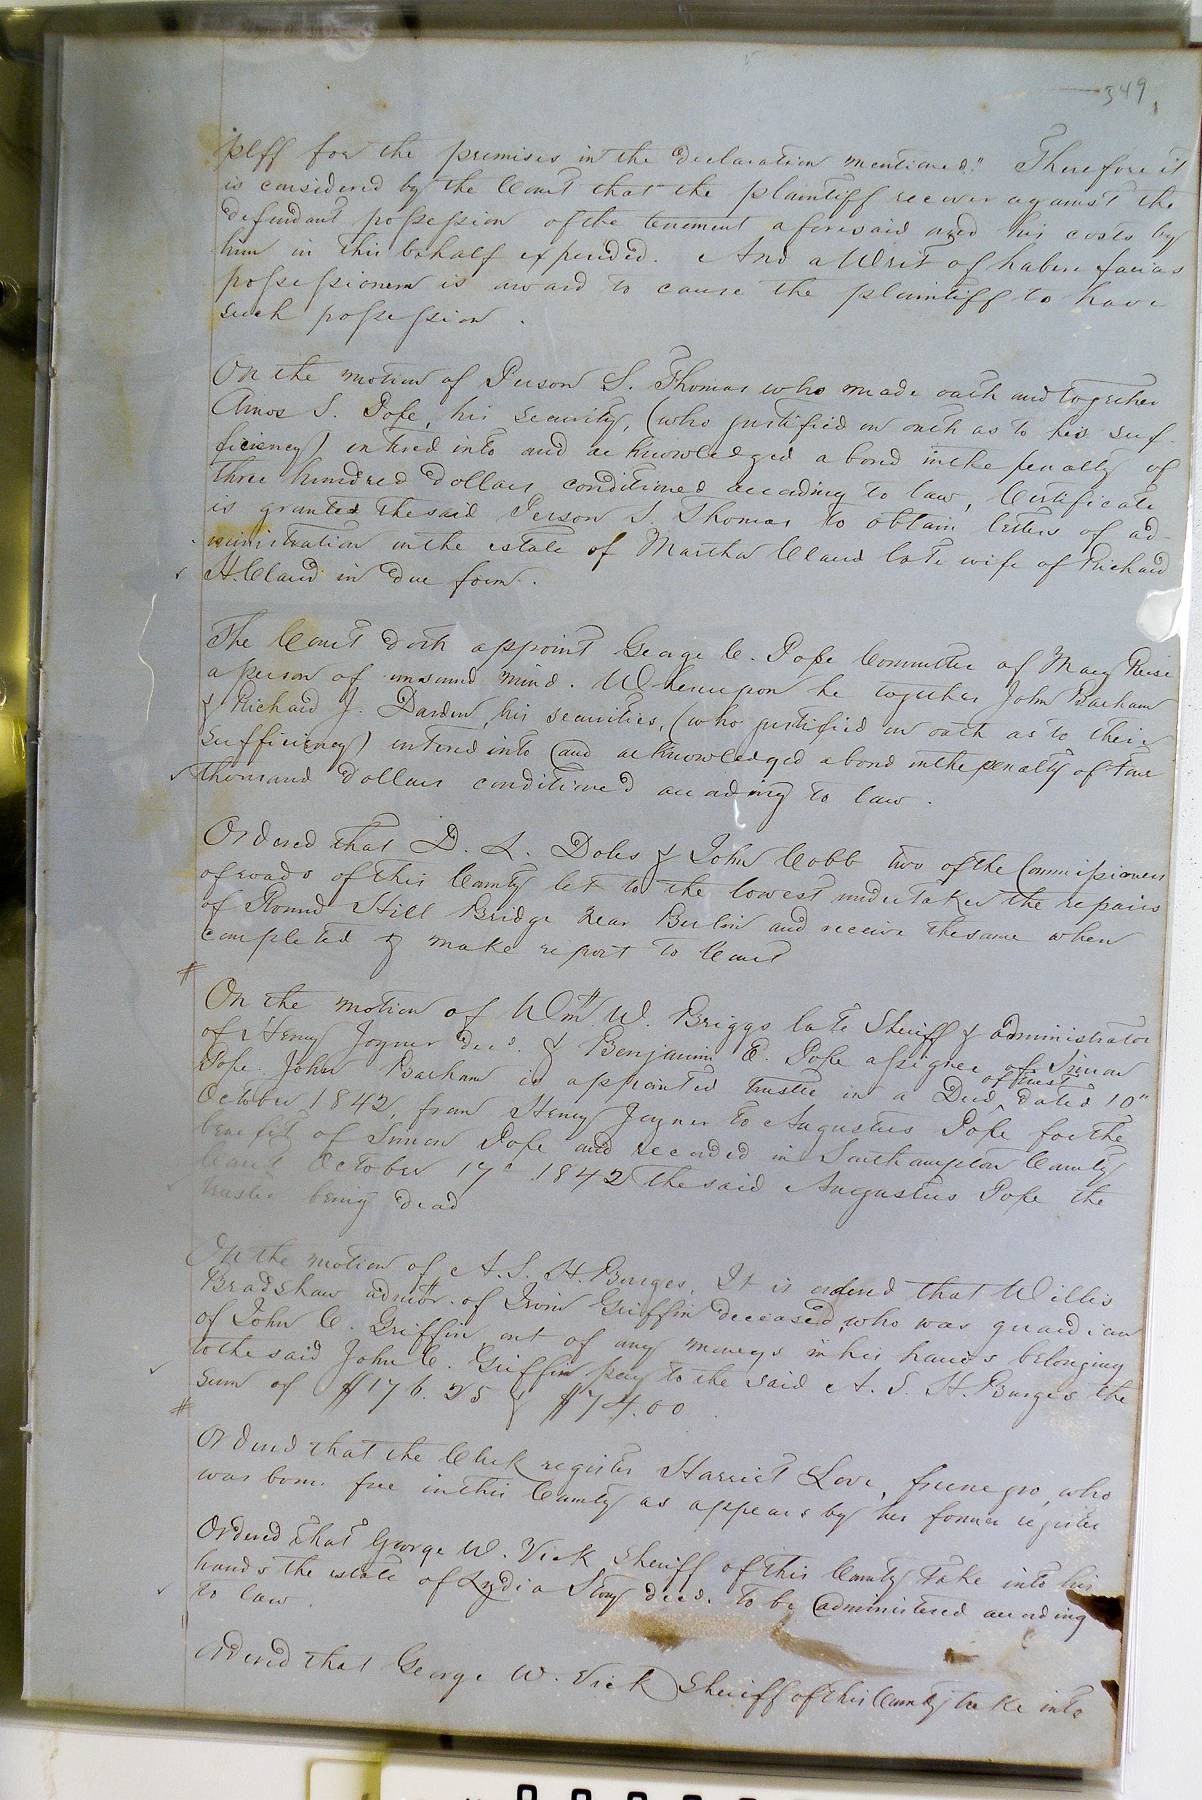 349
plff for the premises in the declaration mentioned." Therefore it
is considered by the Court that the plaintiff recover against the
defendant possession of the tenement aforesaid and his costs by
him in this behalf expended. And a Writ of habere facias
possessionem is award to cause the plaintiff to have
such possession.
On the motion of Person S. Thomas who made oath and together
Amos S. Pope, his security, (who justified on oath as to his suf-
ficiency) entered into and acknowledged a bond in the penalty of
three hundred dollars conditioned according to law, Certificate
is granted the said Person S. Thomas to obtain letters of ad-
ministration on the estate of Martha Claud late wife of Richard
H. Claud in due form.
The Court doth appoint George C. Pope Committee of Mary
a person of unsound mind. Whereupon he together John Barham
& Richard J. Darden, his securities, (who justified on oath as to their
sufficiency) entered into and acknowledged a bond in the penalty of four
thousand dollars conditioned according to law.
Ordered that D. L. Doles & John Cobb two of the Commissioners
of roads of this County let to the lowest undertaker the repairs
of Round Hill Bridge near Berlin and receive the same when
completed & make report to Court
#
On the motion of Wm. W. Briggs late Sheriff & administrator
of Henry Joyner decd. & Benjamin E. Pope assignee of Simon
Pope. John Barham is appointed trustee in a Deed of trust dated 10"
October 1842, from Henry Joyner to Augustus Pope for the
benefit of Simon Pope and recorded in Southampton County
Court October 17" 1842 the said Augustus Pope the
trustee being dead
On the motion of A. S. H. Burges, It is ordered that Willis
Bradshaw admor. of Irvin Griffin deceased, who was guardian
of John C. Griffin out of any moneys in his hands belonging
to the said John C. Griffin pay to the said A. S. H. Burges the
sum of $176.25 & $74.00
#
Ordered that the Clerk register Harriet Love, free negro, who
was born free in this County as appears by her former register
Ordered that George W. Vick Sheriff of this County take into his
hands the estate of Lydia Story decd. to be administered according
to law.
Ordered that George W. Vick Sheriff of this County take into